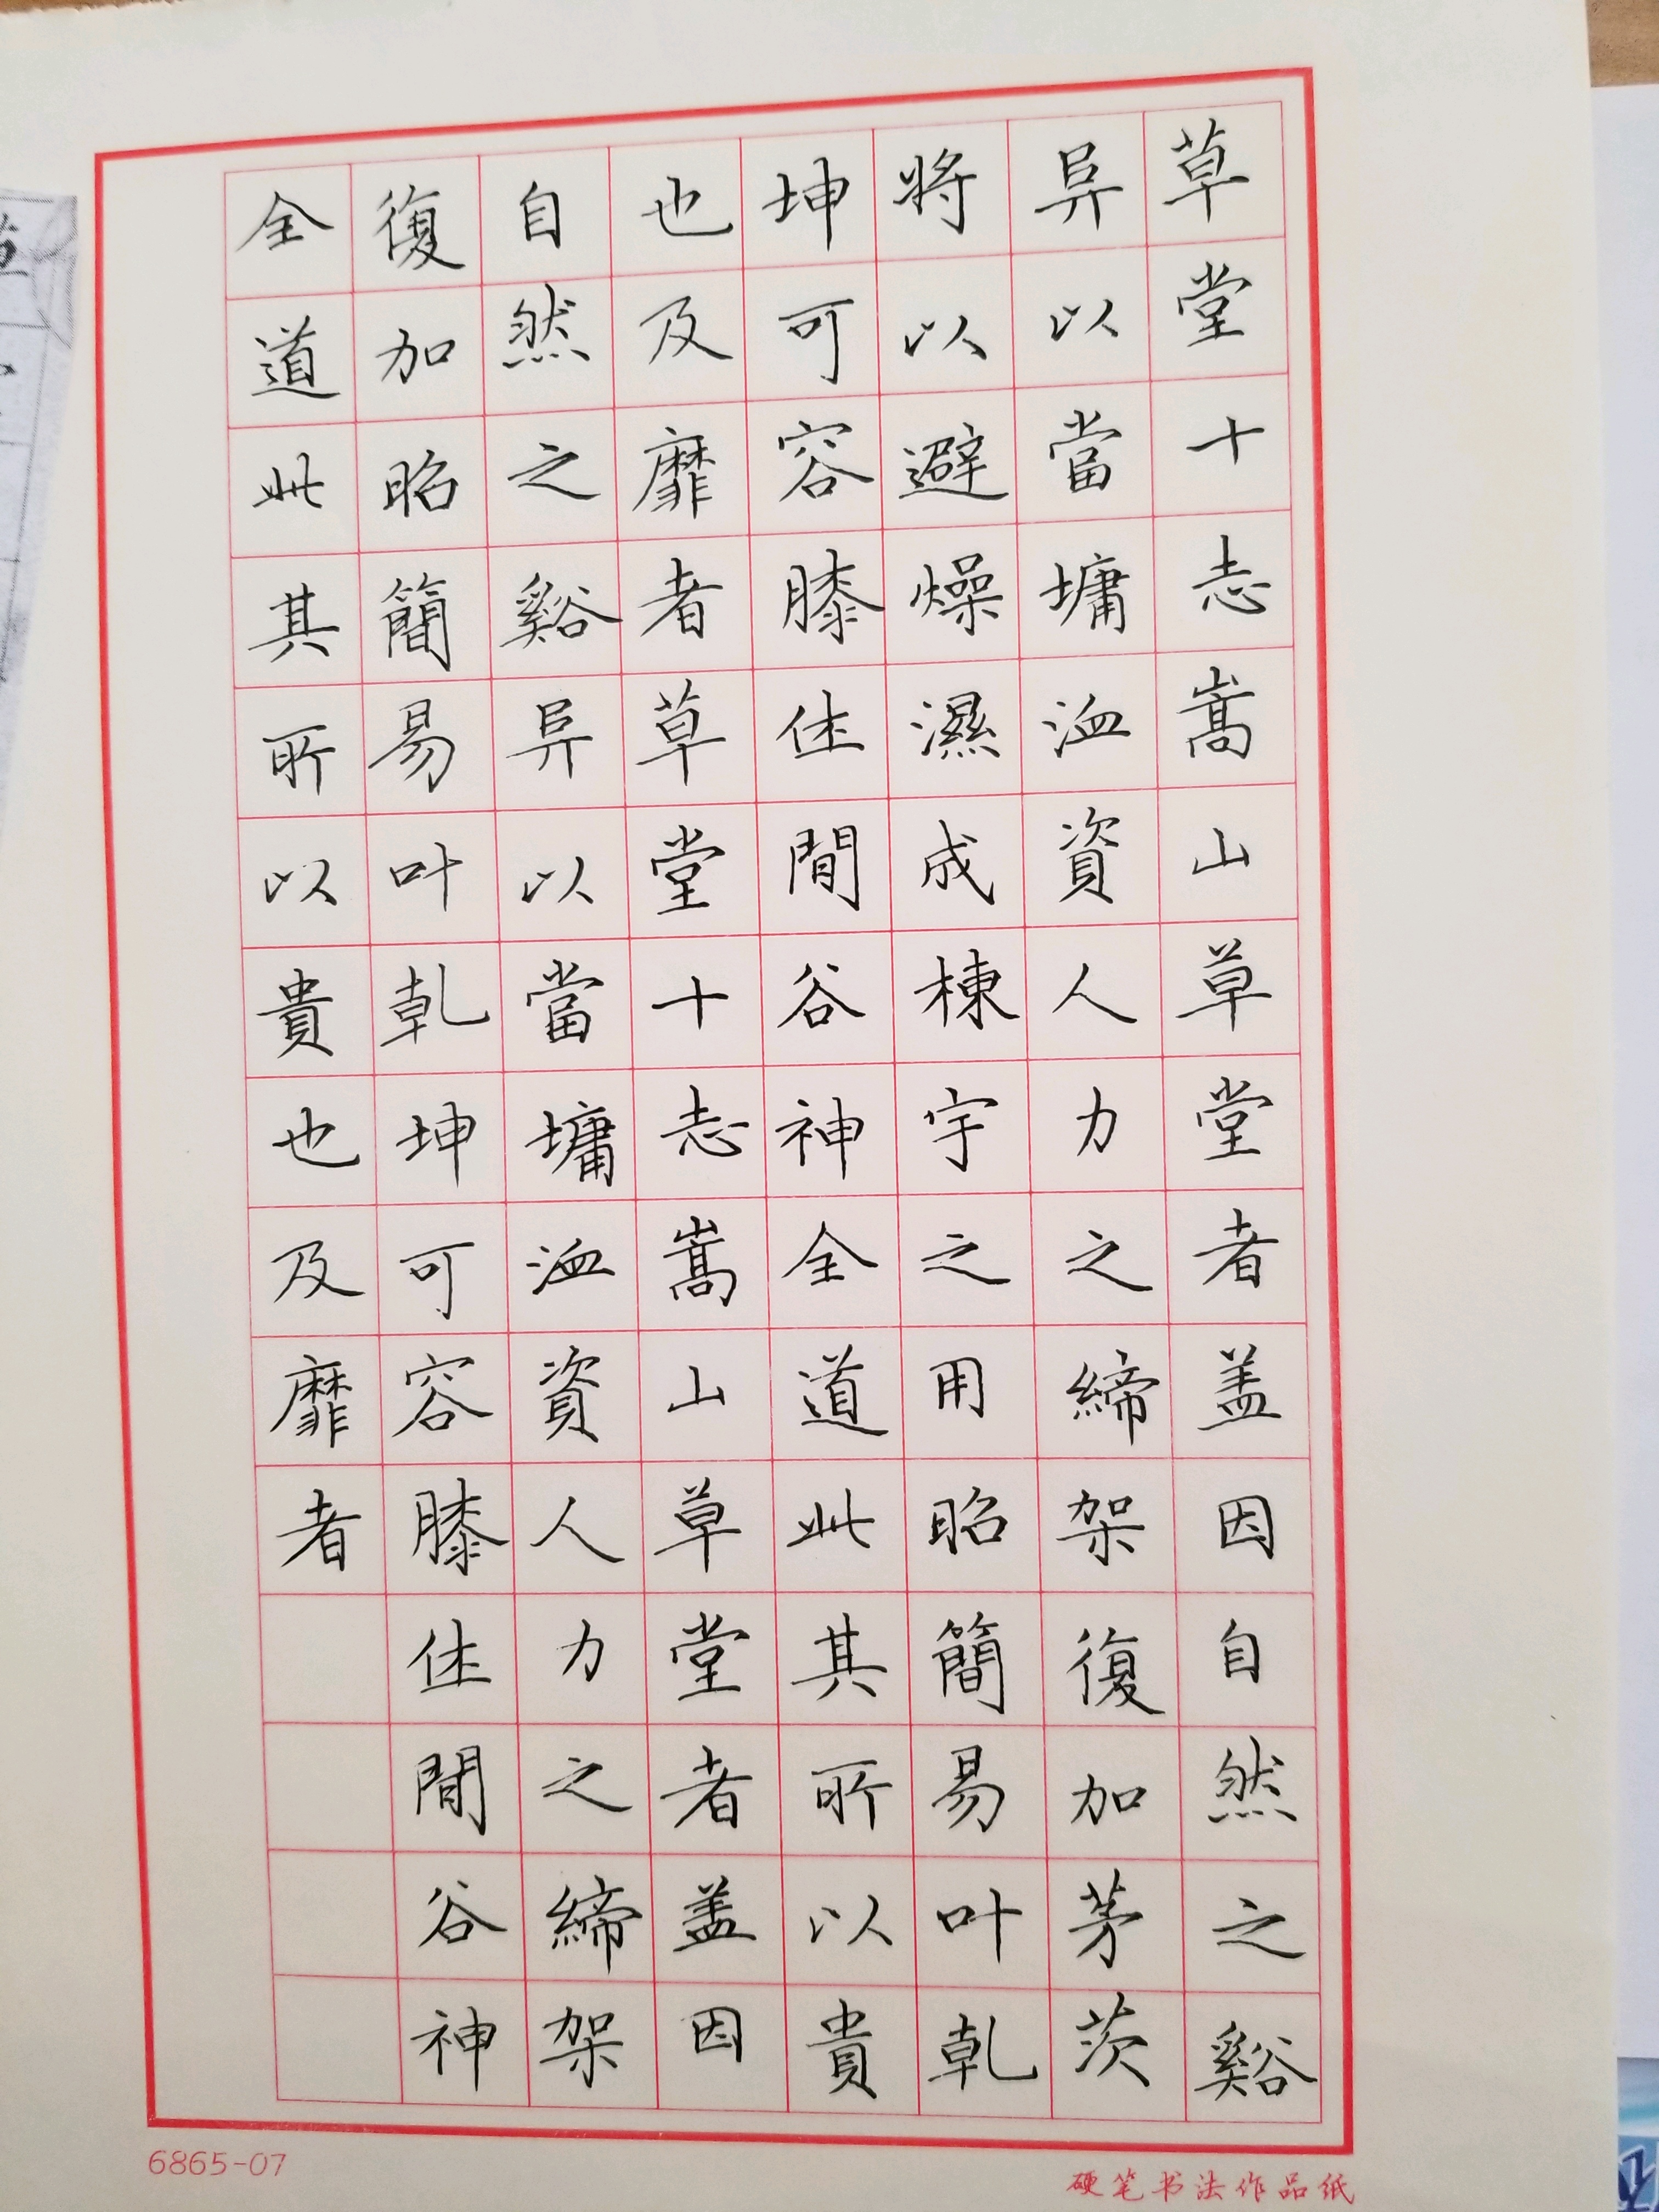 草堂十志嵩山草堂者盖因自然之谿
阜以當墉洫資人力之締架復加茅茨
將以避燥濕成棟宇之用昭簡易叶乾
坤可容膝住間谷神全道此其所以貴
也及靡者草堂十志嵩山草堂者盖因
自然之谿阜以當墉洫資人力之締架
復加昭簡易叶乾坤可容膝住間谷神
全道此其所以貴也及靡者
6865-07
硬笔书法作品纸